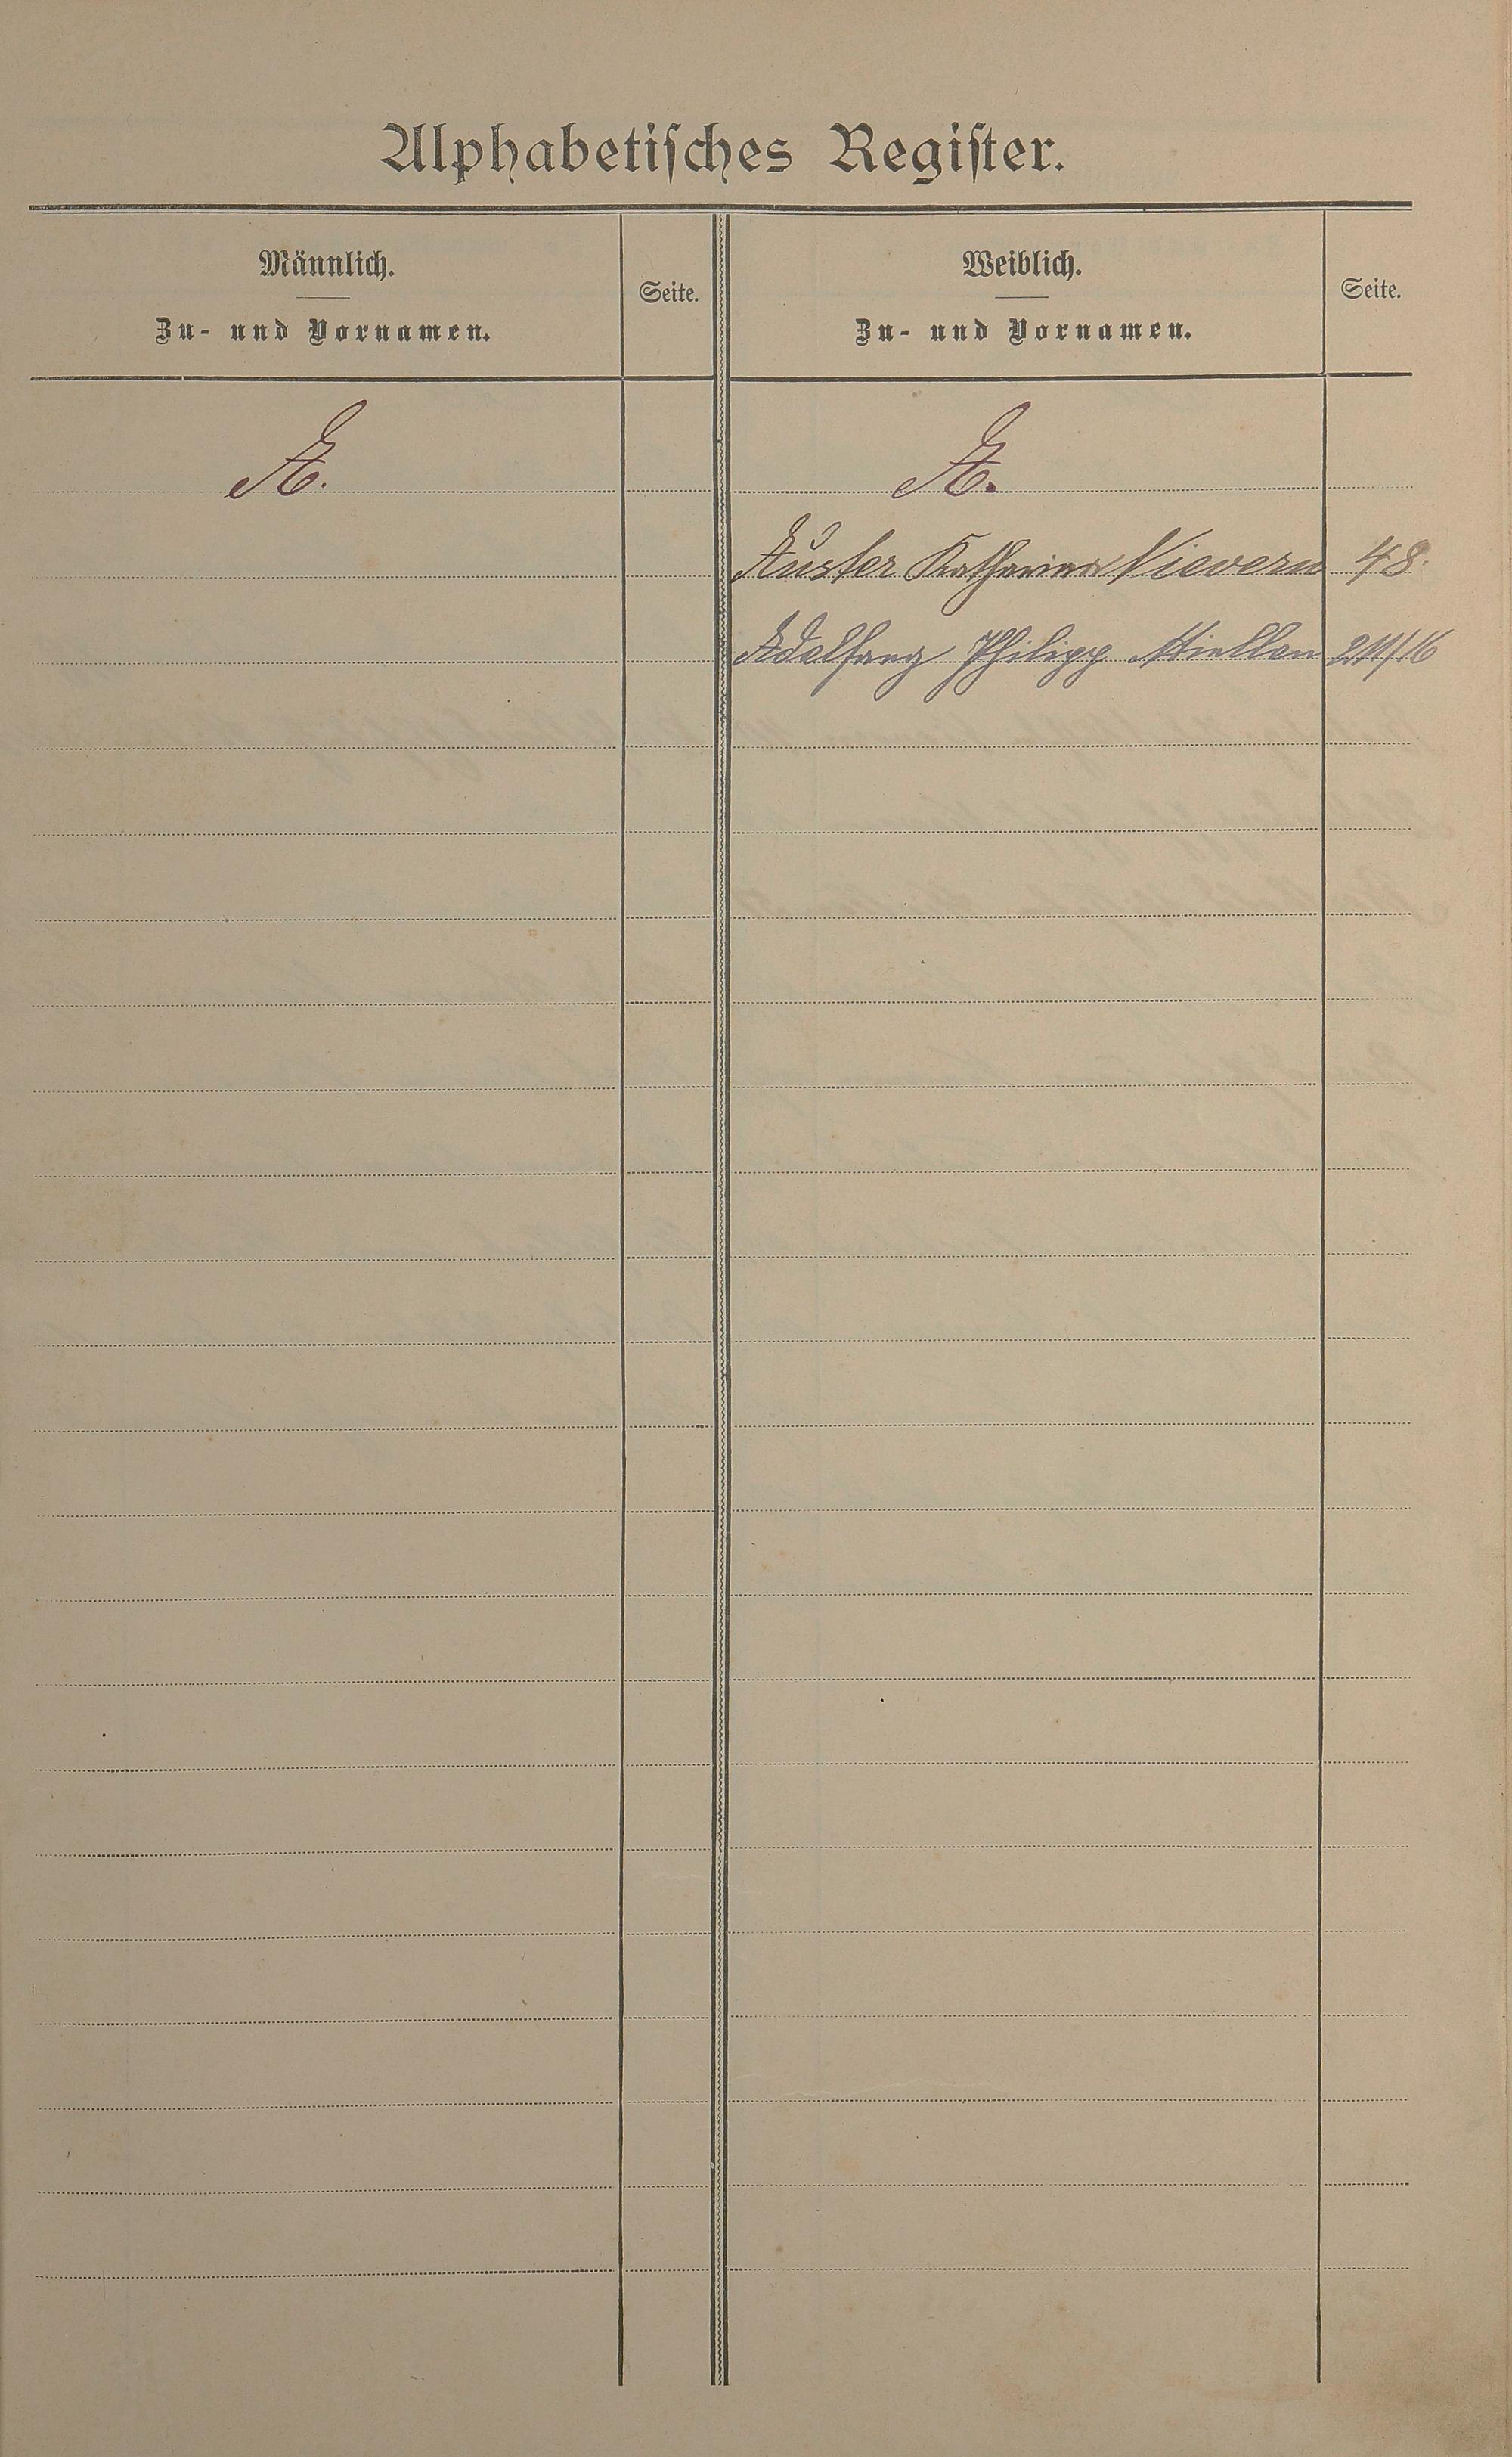 Alphabetisches Register.
Männlich.
Zu- und Vornamen.
Seite.
Weiblich.
Zu- und Vornamen.
Seite.
A.
A.
Auster Katharina Nievern 48.
Adelfang Philipp Miellen